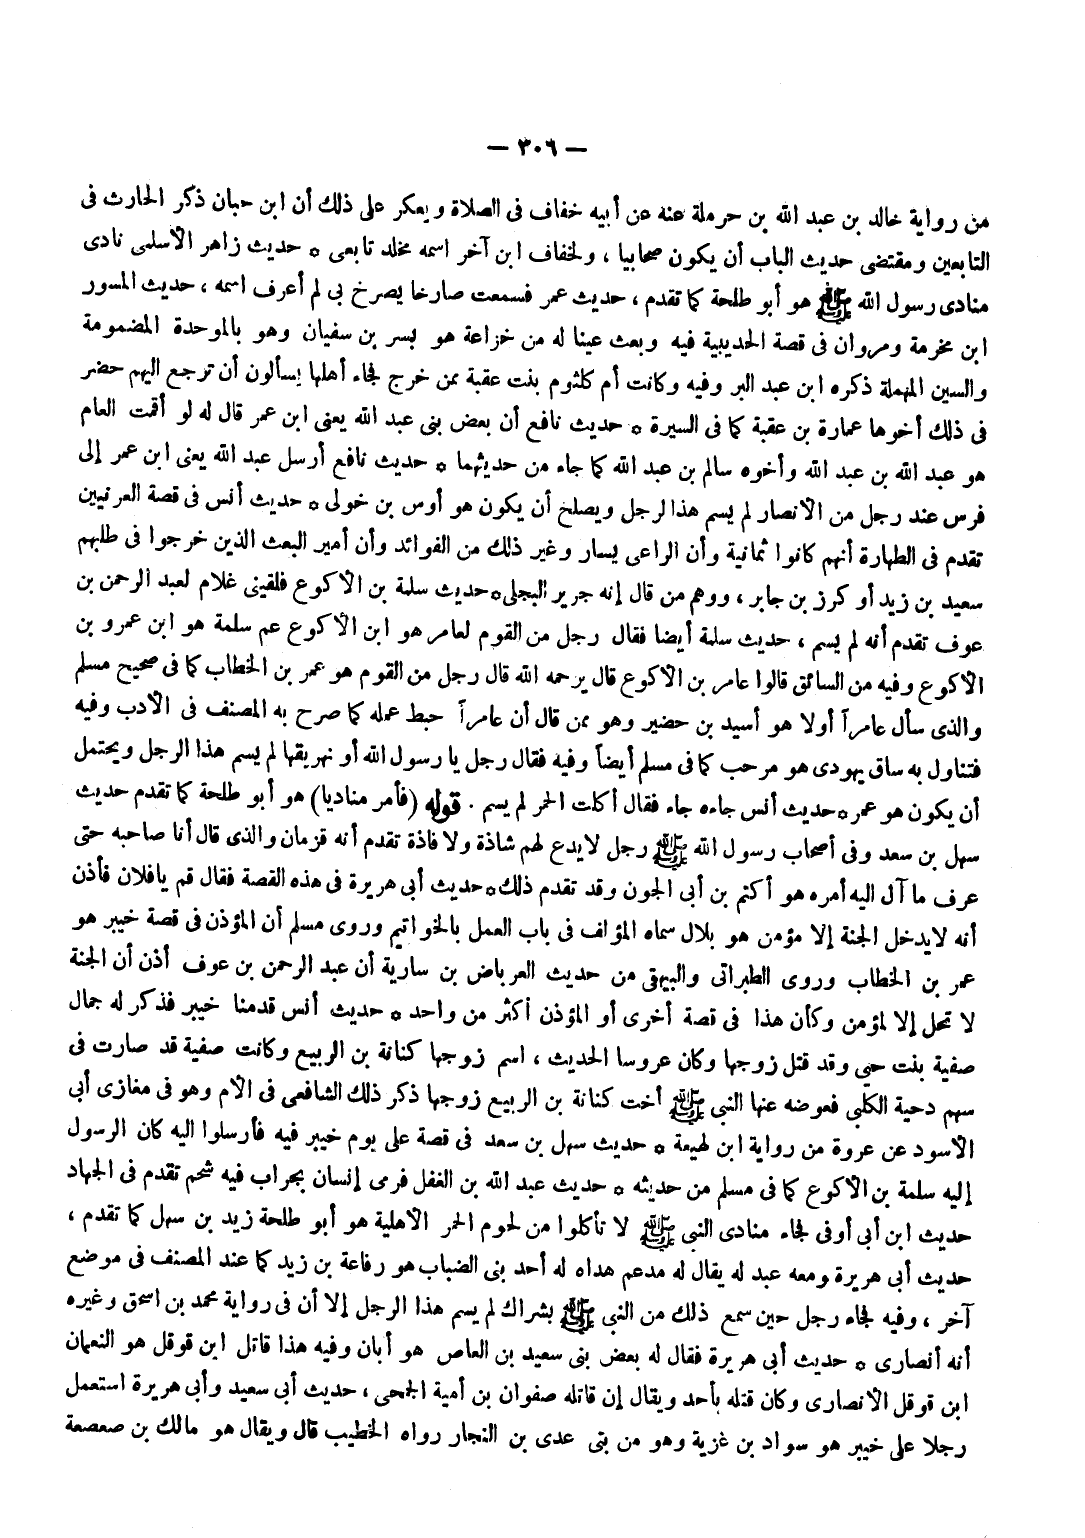 — ٣٠٦ —
من رواية خالد بن عبد الله بن حرملة عنه عن أبيه خفاف فى الصلاة ويعكر على ذلك أن ابن حبان ذكر الحارث فى
التابعين ومقتضى حديث الباب أن يكون صحابيا ، ولخفاف ابن آخر اسمه مخلد تابعى * حديث زاهر الأسلمى نادى
منادى رسول الله ﷺ هو أبو طلحة كما تقدم ، حديث عمر فسمعت صارخا يصرخ بى لم أعرف اسمه ، حديث المسور
ابن مخرمة ومروان فى قصة الحديبية فيه وبعث عينا له من خزاعة هو بسر بن سفيان وهو بالموحدة المضمومة
والسين المهملة ذكره ابن عبد البر وفيه وكانت أم كلثوم بنت عقبة ممن خرج فجاء أهلها يسألون أن ترجع اليهم حضر
فى ذلك أخوها عمارة بن عقبة كما فى السيرة * حديث نافع أن بعض بنى عبد الله يعنى ابن عمر قال له لو أقمت العام
هو عبد الله بن عبد الله وأخوه سالم بن عبد الله كما جاء من حديثهما * حديث نافع أرسل عبد الله يعنى ابن عمر إلى
فرس عند رجل من الأنصار لم يسم هذا الرجل ويصلح أن يكون هو أوس بن خولى * حديث أنس فى قصة العرنيين
تقدم فى الطهارة أنهم كانوا ثمانية وأن الراعى يسار وغير ذلك من الفوائد وأن أمير البعث الذين خرجوا فى طلبهم
سعيد بن زيد أو كرز بن جابر ، ووهم من قال إنه جرير البجلى * حديث سلمة بن الأكوع فلقينى غلام لعبد الرحمن بن
عوف تقدم أنه لم يسم ، حديث سلمة أيضا فقال رجل من القوم لعامر هو ابن الأكوع عم سلمة هو ابن عمرو بن
الأكوع وفيه من السائق قالوا عامر بن الأكوع قال يرحمه الله قال رجل من القوم هو عمر بن الخطاب كما فى صحيح مسلم
والذى سأل عامراً أولا هو أسيد بن حضير وهو ممن قال أن عامراً حبط عمله كما صرح به المصنف فى الأدب وفيه
فتناول به ساق يهودى هو مرحب كما فى مسلم أيضاً وفيه فقال رجل يا رسول الله أو نهريقها لم يسم هذا الرجل ويحتمل
أن يكون هو عمر * حديث أنس جاءه جاء فقال أكلت الحمر لم يسم . قوله (فأمر مناديا) هو أبو طلحة كما تقدم حديث
سهل بن سعد وفى أصحاب رسول الله ﷺ رجل لايدع لهم شاذة ولا فاذة تقدم أنه قزمان والذى قال أنا صاحبه حتى
عرف ما آل اليه أمره هو أكثم بن أبى الجون وقد تقدم ذلك * حديث أبى هريرة فى هذه القصة فقال قم يافلان فأذن
أنه لايدخل الجنة إلا مؤمن هو بلال سماه المؤلف فى باب العمل بالخواتيم وروى مسلم أن المؤذن فى قصة خيبر هو
عمر بن الخطاب وروى الطبرانى والبيهقى من حديث العرباض بن سارية أن عبد الرحمن بن عوف أذن أن الجنة
لا تحل إلا لمؤمن وكأن هذا فى قصة أخرى أو المؤذن أكثر من واحد * حديث أنس قدمنا خيبر فذكر له جمال
صفية بنت حيى وقد قتل زوجها وكان عروسا الحديث ، اسم زوجها كنانة بن الربيع وكانت صفية قد صارت فى
سهم دحية الكلبى فعوضه عنها النبى ﷺ أخت كنانة بن الربيع زوجها ذكر ذلك الشافعى فى الأم وهو فى مغازى أبى
الأسود عن عروة من رواية ابن لهيعة * حديث سهل بن سعد فى قصة على يوم خيبر فيه فأرسلوا اليه كان الرسول
إليه سلمة بن الأكوع كما فى مسلم من حديثه * حديث عبد الله بن الغفل فرمى إنسان بجراب فيه شحم تقدم فى الجهاد
حديث ابن أبى أوفى فجاء منادى النبى ﷺ لا تأكلوا من لحوم الحمر الأهلية هو أبو طلحة زيد بن سهل كما تقدم ،
حديث أبى هريرة ومعه عبد له يقال له مدعم هداه له أحد بنى الضباب هو رفاعة بن زيد كما عند المصنف فى موضع
آخر ، وفيه فجاء رجل حين سمع ذلك من النبى ﷺ بشراك لم يسم هذا الرجل إلا أن فى رواية محمد بن اسحق وغيره
أنه أنصارى * حديث أبى هريرة فقال له بعض بنى سعيد بن العاص هو أبان وفيه هذا قاتل ابن قوقل هو النعمان
ابن قوقل الأنصارى وكان قتله بأحد ويقال إن قاتله صفوان بن أمية الجمحى ، حديث أبى سعيد وأبى هريرة استعمل
رجلا على خيبر هو سواد بن غزية وهو من بنى عدى بن النجار رواه الخطيب قال ويقال هو مالك بن صعصعة